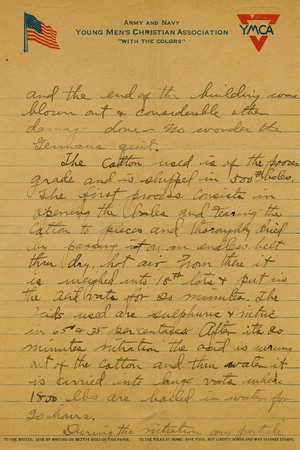 ARMY AND NAVY
YOUNG MEN'S CHRISTIAN ASSOCIATION
"WITH THE COLORS"
YMCA
and the end of the building was
blown out & considerable other
damage done – No wonder the
Germans quit.
The Cotton used is of the poorer
grade and is shipped in 500# bales.
The first process consists in
opening the bales and tearing the
Cotton to pieces and thoroughly dried
by passing it on an endless belt
thru dry hot air. From there it
is weighed into lots & put in
the acid vats for 20 minutes. The
acids used are sulphuric & nitric
in 65 & 35 percentages. After its 20
minutes nitration the acid is wrung
out of the cotton and then water it
is carried into large vats where
1800 lbs are boiled in water for
20 hours.
During the nitration any particle
TO THE WRITER: SAVE BY WRITING ON BOTH SIDES OF THIS PAPER. TO THE FOLKS AT HOME: SAVE FOOD, BUY LIBERTY BONDS AND WAR SAVINGS STAMPS